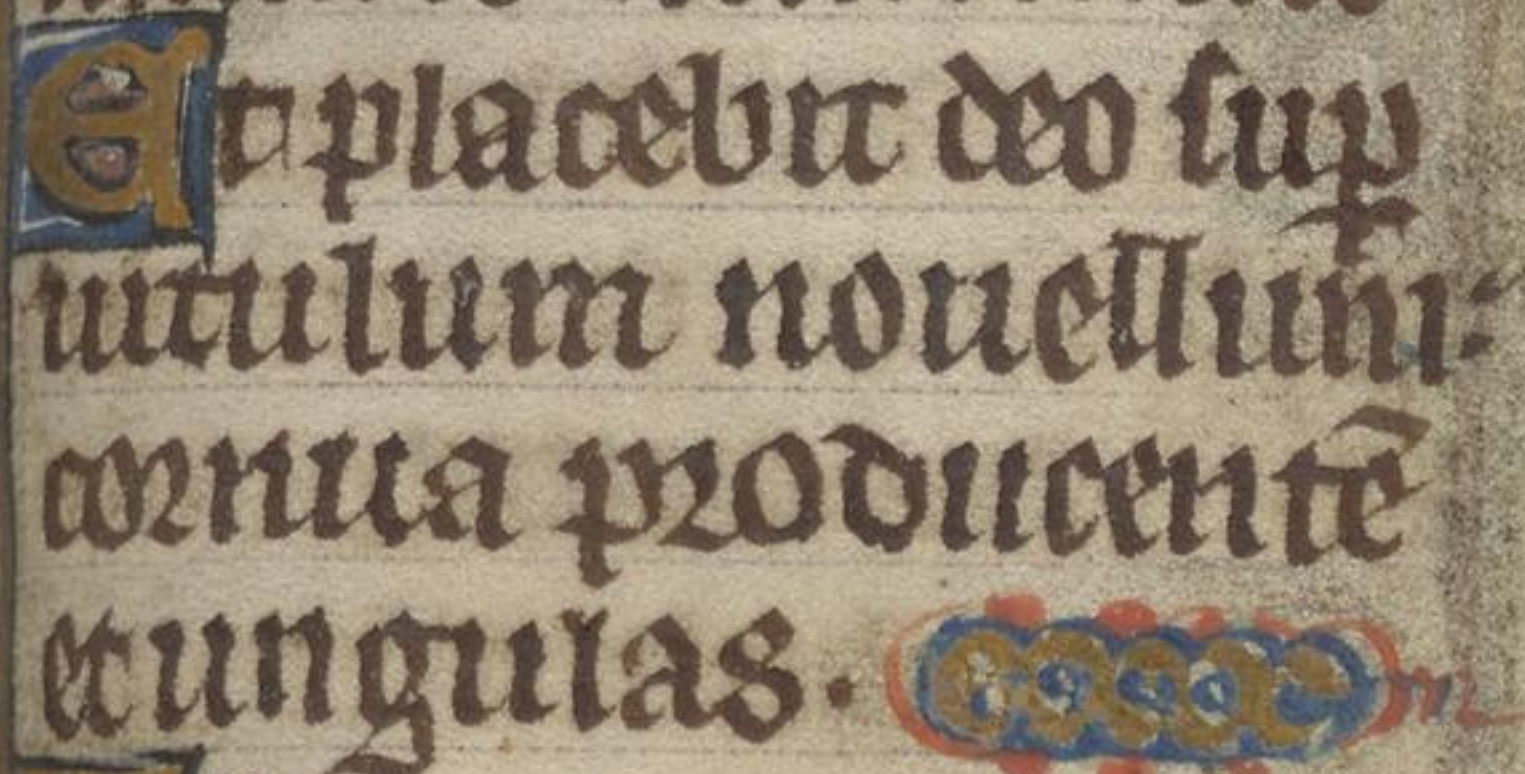 Et placebit deo sup̱
uitulum nouellum:
cornua producentē
et ungulas.